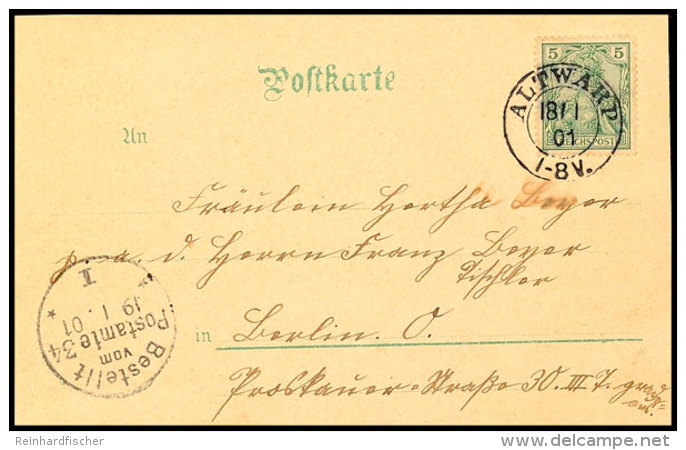 5 5
REICHSPOST
Postkarte
ALTWARP
18/1
01
1-8V.
An
Fräulein Hertha Beyer
p. a. d. Herrn Franz Beyer
Tischler
in Berlin. O.
Proskauer-Straße 30. III T.
Bestellt
vom
Postamte 34
19 1. 01
I
Reinhardfischer
www.delcampe.net